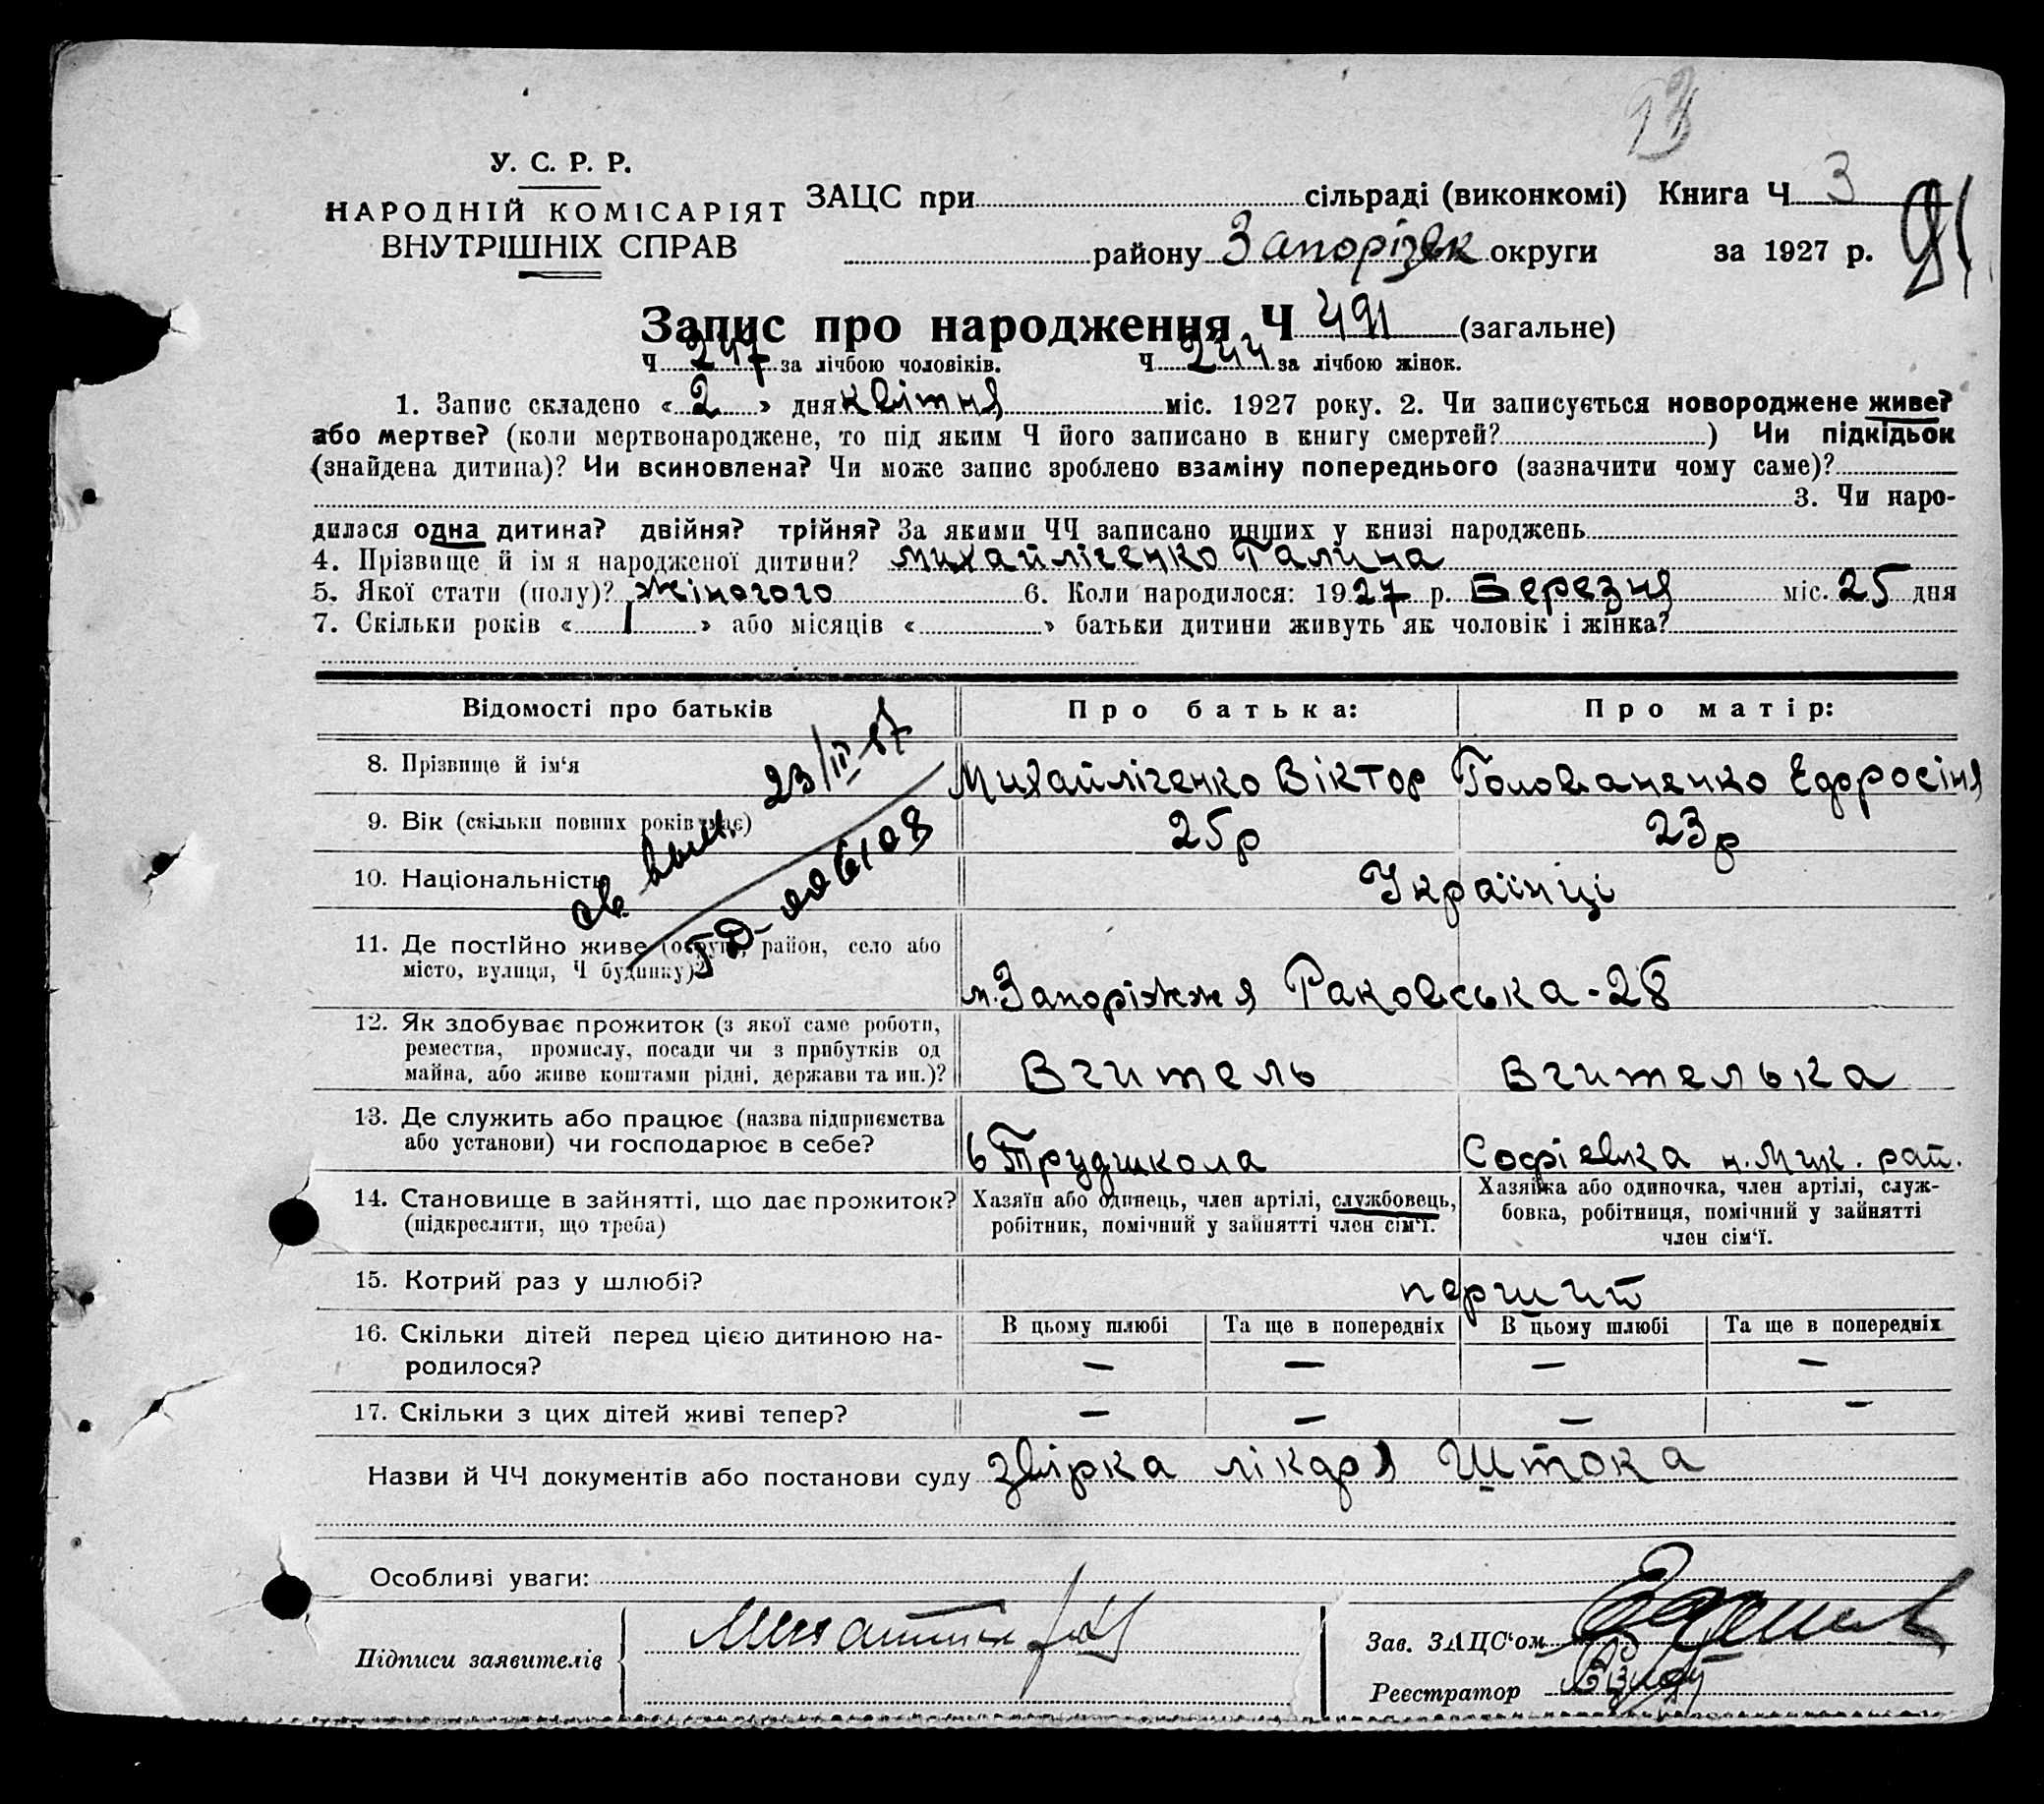 13
У. С. Р. Р.
НАРОДНІЙ КОМІСАРІЯТ
ВНУТРІШНІХ СПРАВ
ЗАЦС при сільраді (виконкомі) Книга Ч 3
району Запорізьк округи за 1927 р.
91
Запис про народження Ч 491 (загальне)
Ч 247 за лічбою чоловіків. Ч 244 за лічбою жінок.
1. Запис складено « 2 » дня квітня міс. 1927 року. 2. Чи записується новороджене живе?
або мертве? (коли мертвонароджене, то під яким Ч його записано в книгу смертей? ) Чи підкідьок
(знайдена дитина)? Чи всиновлена? Чи може запис зроблено взаміну попереднього (зазначити чому саме)?
3. Чи наро-
дилася одна дитина? двійня? трійня? За якими ЧЧ записано инших у книзі народжень
4. Прізвище й ім я народженої дитини? Михайліченко Галина
5. Якої стати (полу)? жіночого 6. Коли народилося: 1927 р. Березня міс. 25 дня
7. Скільки років « 1 » або місяців « » батьки дитини живуть як чоловік і жінка?
Відомості про батьків Про батька: Про матір:
8. Прізвище й ім'я Михайліченко Віктор Голованенко Ефросінія
9. Вік (скільки повних років має) 25р 23р
10. Національність Українці
11. Де постійно живе (округа, район, село або
місто, вулиця, Ч будинку)? м. Запоріжжя Раковська - 28
23/IV 57
12. Як здобуває прожиток (з якої саме роботи,
ремества, промислу, посади чи з прибутків од
майна, або живе коштами рідні, держави та ин.)? Вчитель Вчителька
13. Де служить або працює (назва підприємства
або установи) чи господарює в себе? 6 Трудшкола Софіевка н. Мик. рай.
14. Становище в зайнятті, що дає прожиток?
(підкреслити, що треба)
Хазяїн або одинець, член артілі, службовець,
робітник, помічний у зайнятті член сім'ї.
Хазяйка або одиночка, член артілі, служ-
бовка, робітниця, помічний у зайнятті
член сім'ї.
15. Котрий раз у шлюбі? перший
16. Скільки дітей перед цією дитиною на-
родилося?
В цьому шлюбі Та ще в попередніх В цьому шлюбі Та ще в попередніх
— — — —
17. Скільки з цих дітей живі тепер? — — — —
Назви й ЧЧ документів або постанови суду звірка лікаря Штока
Особливі уваги:
Підписи заявителів
Зав. ЗАЦС'ом
Реєстратор